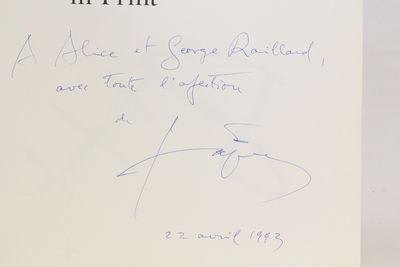 in Print
A Alice et George Raillard,
avec toute l'afection
de
Tàpies
22 avril 1993